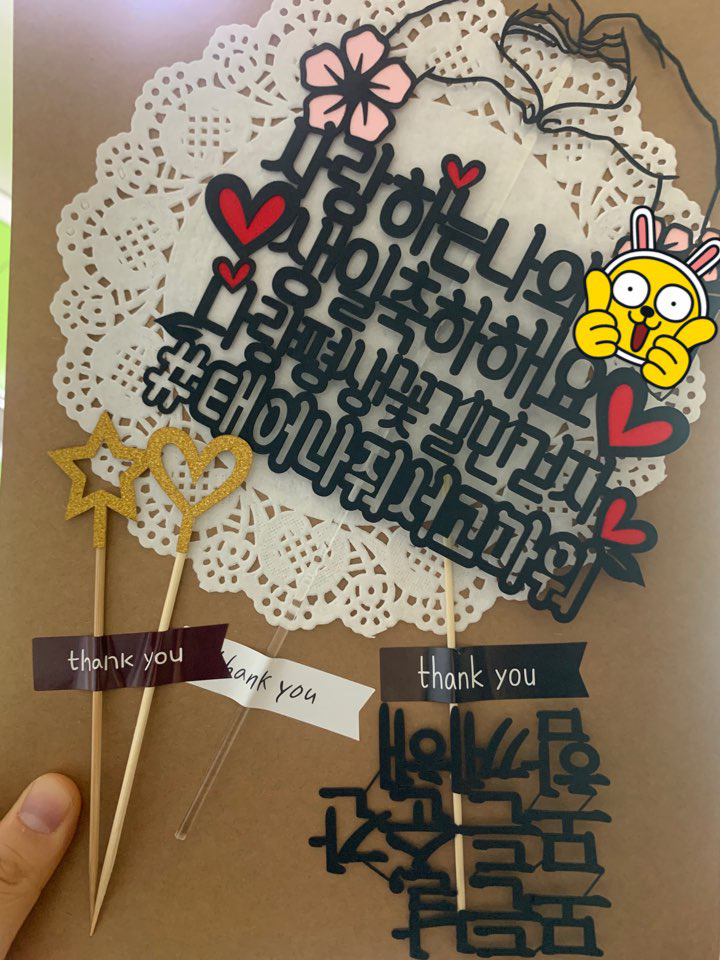 사랑하는나의
생일축하해요
나랑평생꽃길만걷자
#태어나줘서고마워
thank you
thank you
thank you